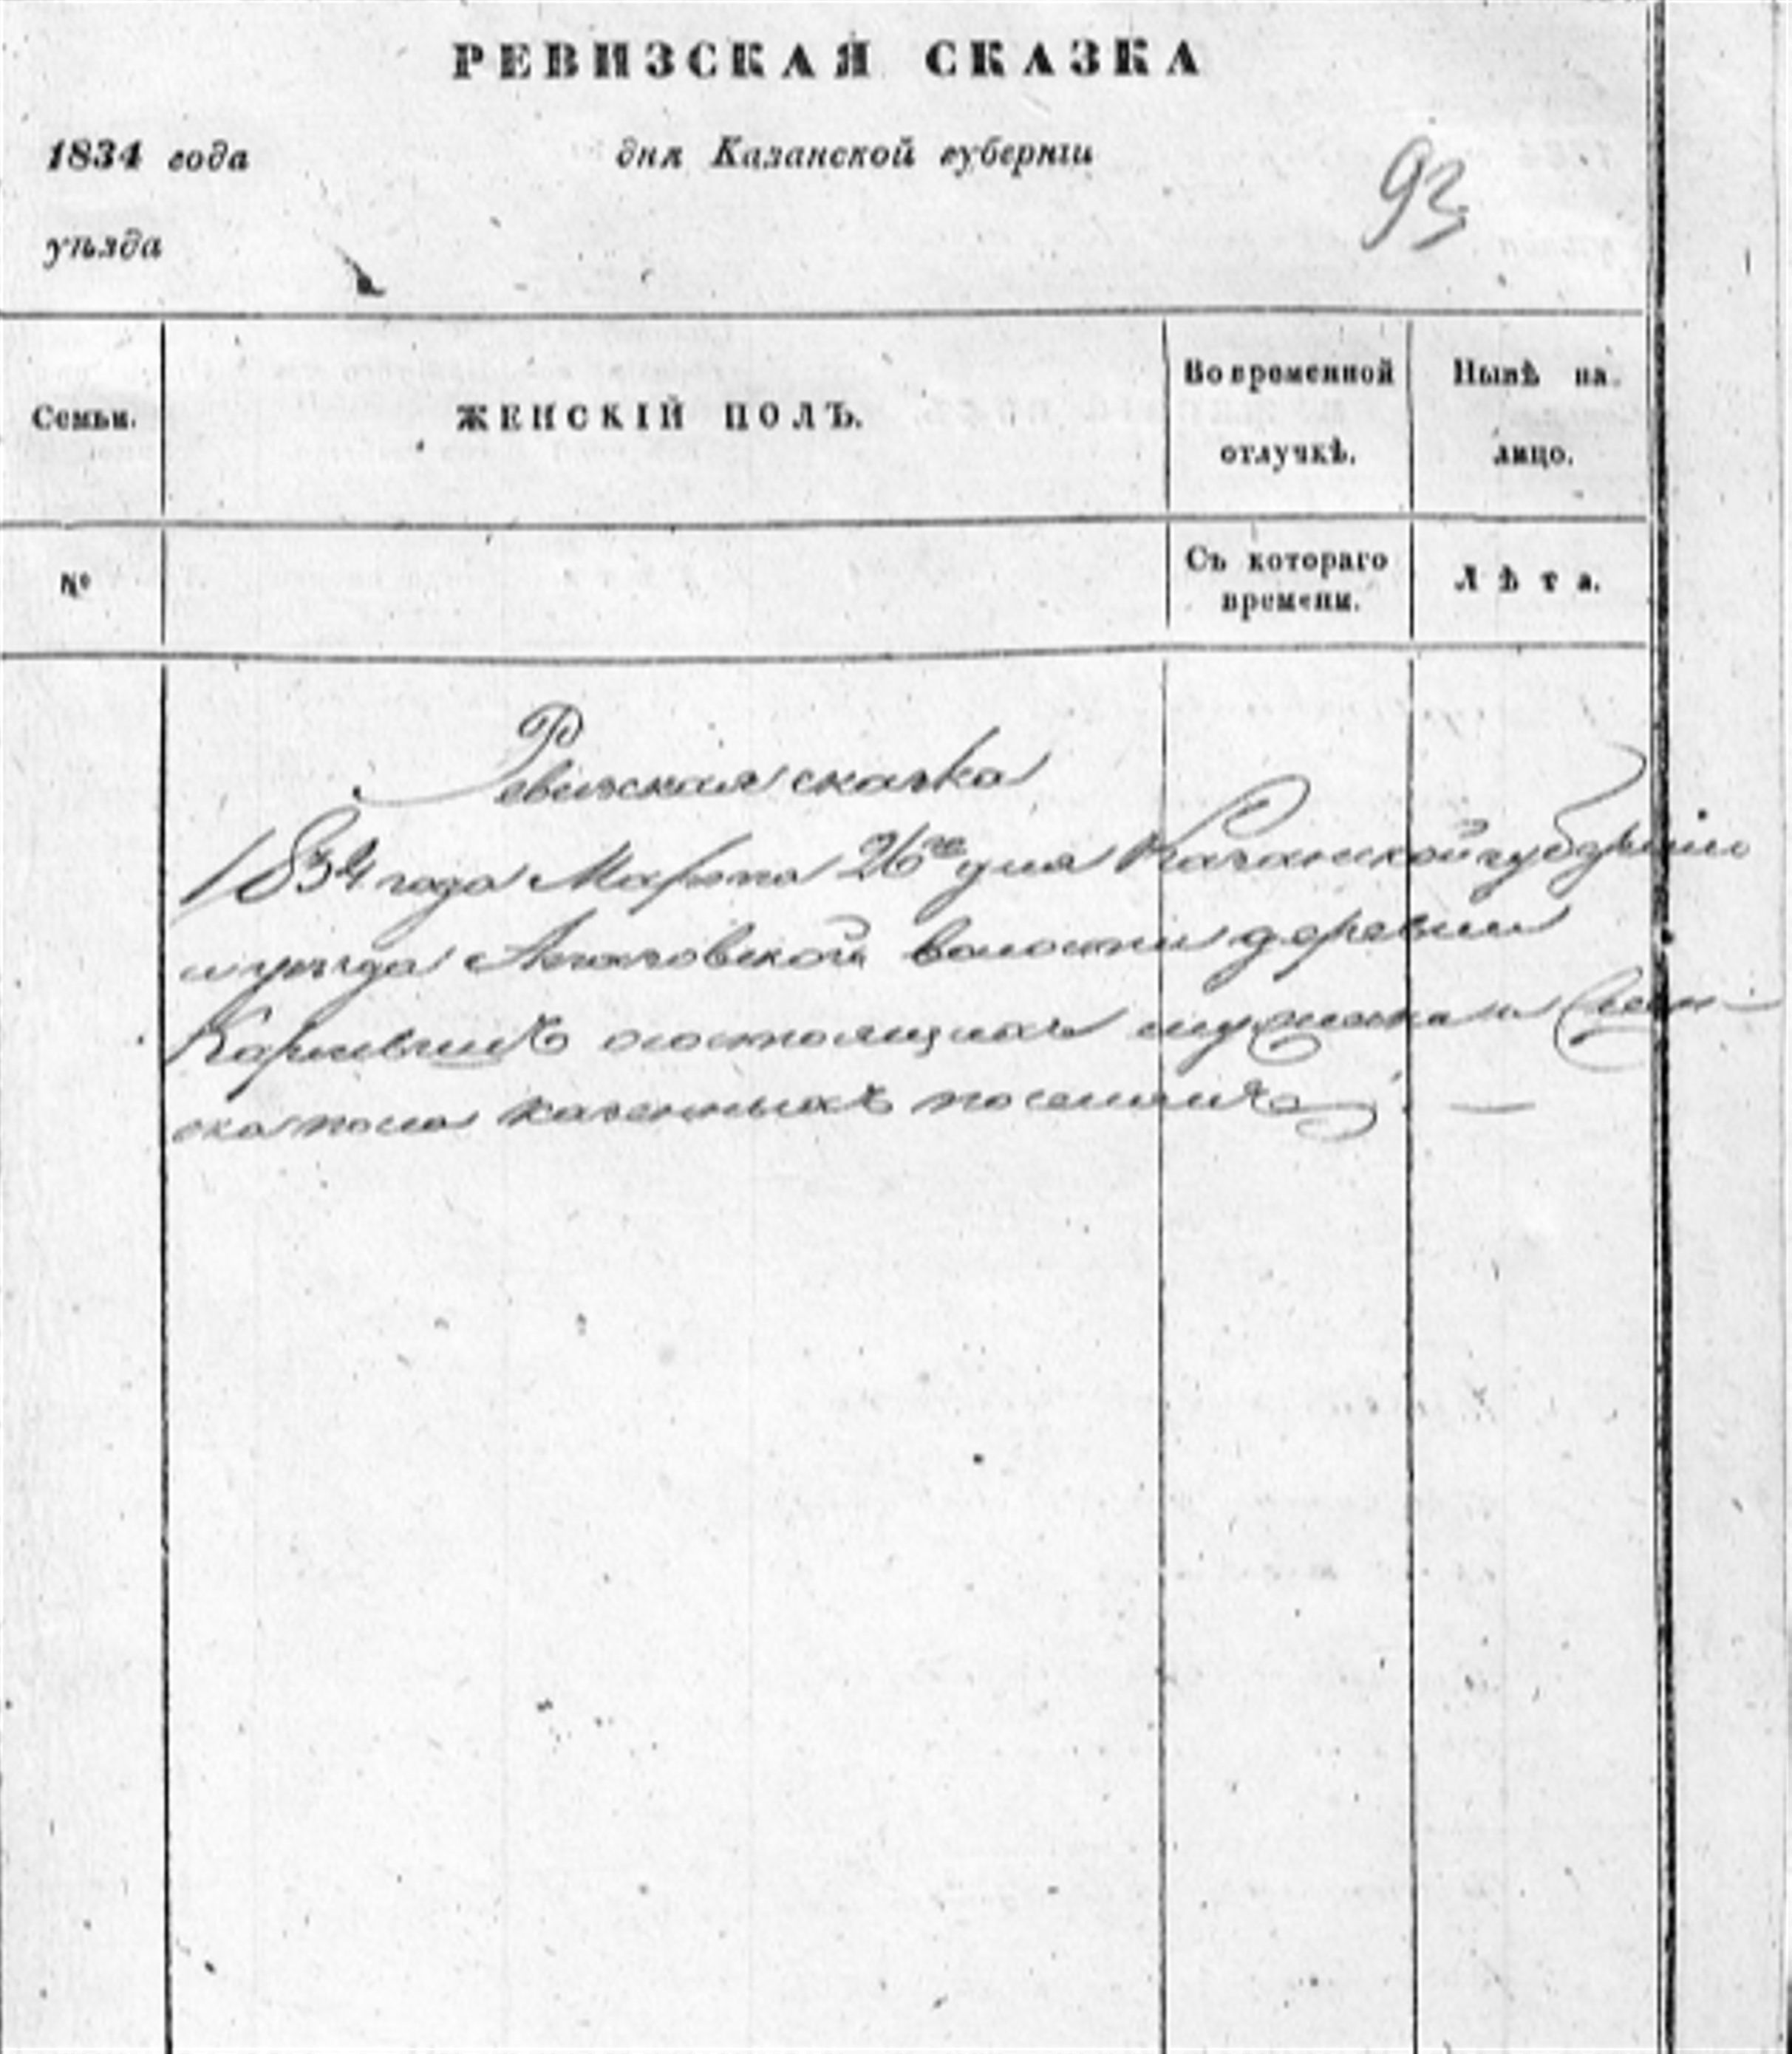 РЕВИЗСКАЯ СКАЗКА
1834 года дня Казанской губернiи
93
уѣзда
Семьи.
ЖЕНСКІЙ ПОЛЪ.
Во временной
отлучкѣ.
Нынѣ на
лицо.
№
Съ котораго
времени.
Лѣта.
Ревизская сказка
1834 года Марта 26го дня Казанской губернии
и уезда волости деревни
состоящихъ мужеска и жен-
ска пола казенныхъ поселянъ